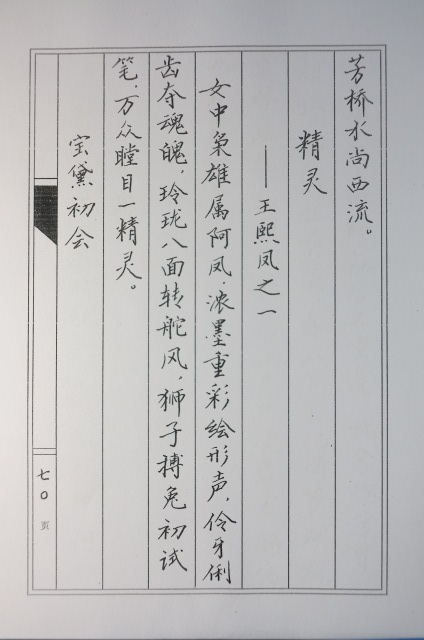 芳桥水尚西流。
精灵
——王熙凤之一
女中枭雄属阿凤，浓墨重彩绘形声，伶牙俐
齿夺魂魄，玲珑八面转舵风，狮子搏兔初试
笔，万众瞠目一精灵。
宝黛初会
七〇页